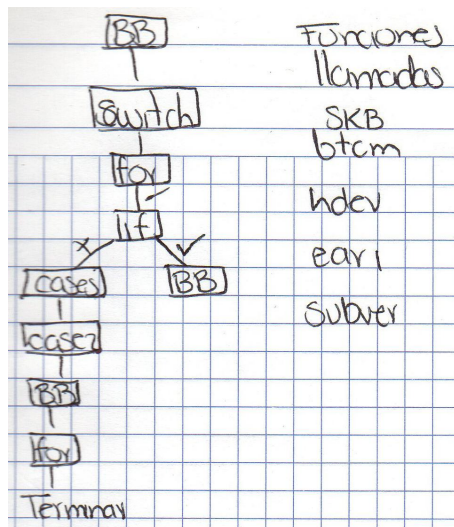 BB
switch
for
if
cases
BB
case2
BB
for
Terminar
Funciones
llamadas
SKB
btcm
hdev
ear1
subver